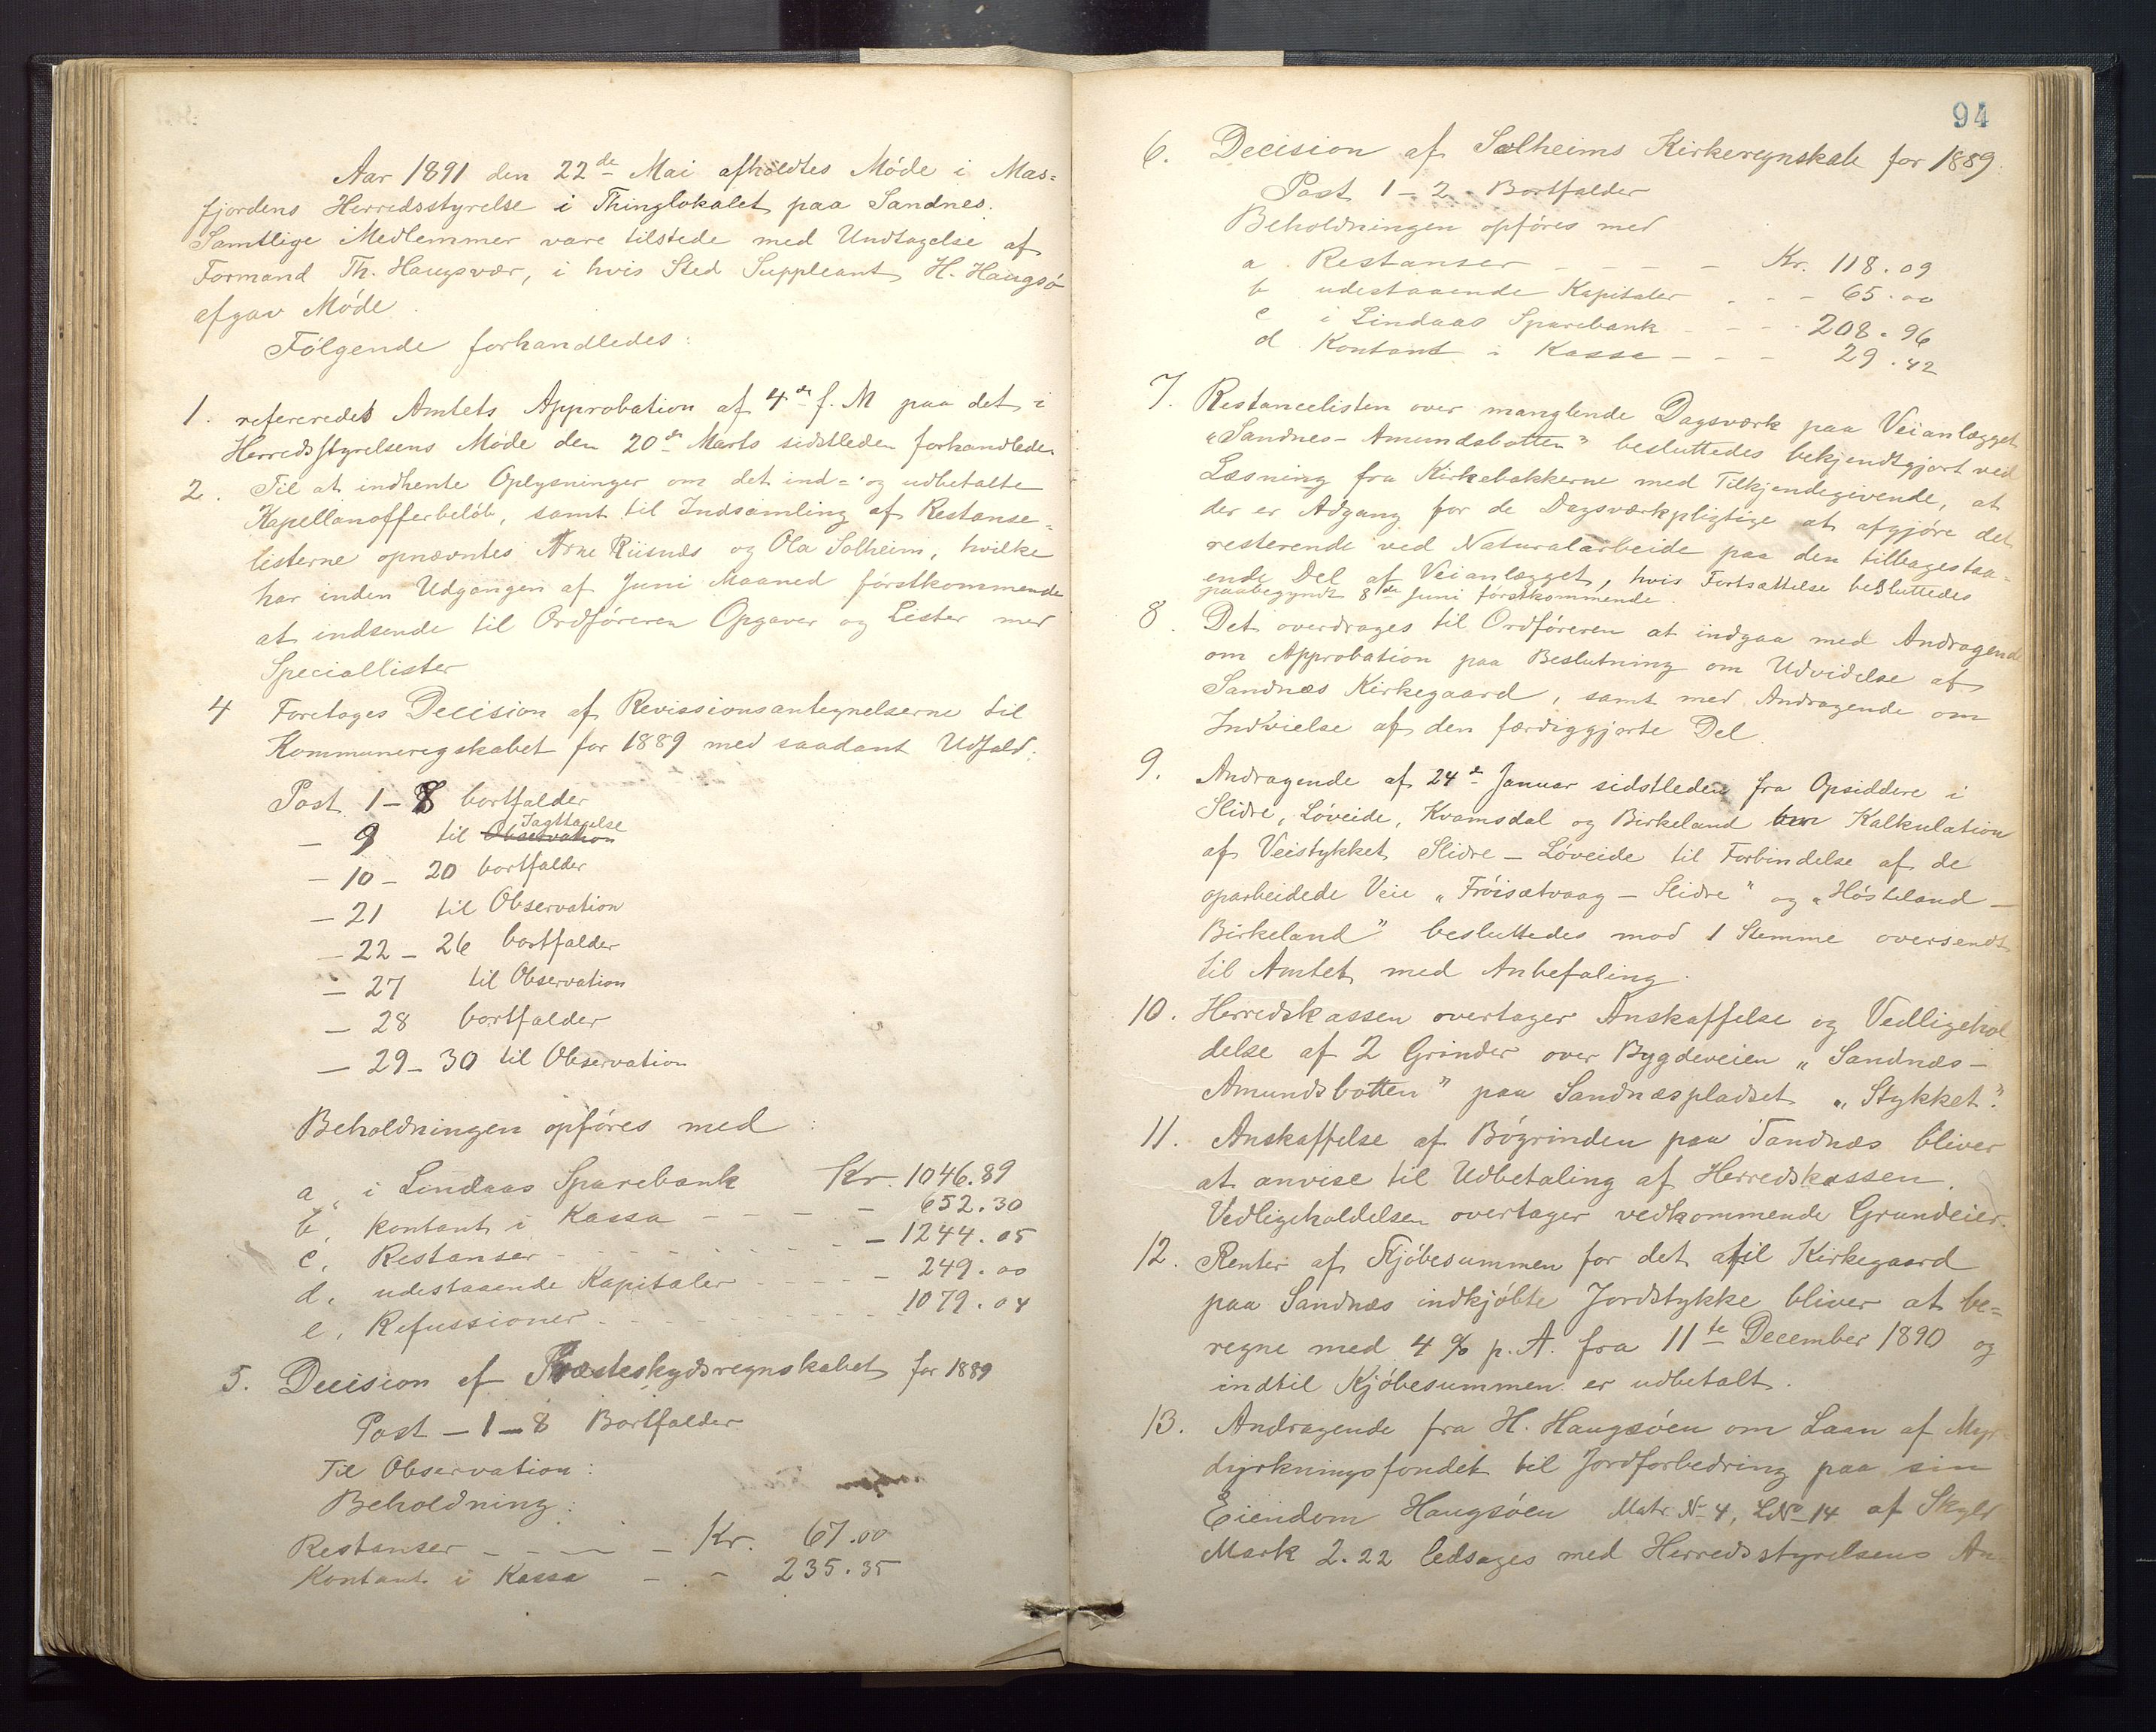 Aar 1891 den 22de Mai afholdtes Møde i Mas=
fjordens Herredsstyrelse i Thinglokalet paa Sandnes.
Samtlige Medlemmer vare tilstede med Undtagelse af
Formand Th. Haugsvær, i hvis Sted Suppleant H. Haugsø
afgav Møde.
Følgende forhandledes:
1. refereredes Amtets Approbation af 4de f. M paa det i
Herredsstyrelsens Møde den 20de Marts sidstleden forhandlede.
2. Til at indhente Oplysninger om det ind= og udbetalte
Kapellanofferbeløb, samt til Indsamling af Restanse=
listerne opnævntes Arne Riisnæs og Ola Solheim, hvilke
har inden Udgangen af Juni Maaned førstkommende
at indsende til Ordføreren Opgaver og Lister med
Speciallister
4 Foretages Decision af Revissionsantegnelserne til
Kommuneregskabet for 1889 med saadant Udfald:
Post 1–8 bortfalder
Jagttagelse
— 9 til Observation
— 10 – 20 bortfalder
— 21 til Observation
— 22 – 26 bortfalder
— 27 til Observation
— 28 bortfalder
— 29 – 30 til Observation
Beholdningen opføres med :
a, i Lindaas Sparebank Kr. 1046.89
b, kontant i Kassa – – – – 652.30
c, Restanser – – – – – 1244.05
d, udestaaende Kapitaler – – – – 249.00
e, Refussioner – – – – 1079.04
5. Decision af Præsteskydsregnskabet for 1889
Post – 1 – 8 Bortfalder
Til Observation :
Beholdning :
Restanser – – – – Kr. 67.00
Kontant i Kassa – – 235.35
94
6. Decision af Solheims Kirkeregnskab for 1889.
Post 1 – 2 – Bortfalder
Beholdningen opføres med
a. Restanser – – – – Kr. 118.09
b udestaaende Kapitaler – – – 65.00
c i Lindaas Sparebank – – – 208.96
d. Kontant i Kassa – – – 29.42
7. Restancelisten over manglende Dagsværk paa Veianlægget
"Sandnes – Amundsbotten" besluttedes bekjendtgjort ved
Læsning fra Kirkebakkerne med Tilkjendegivende, at
der er Adgang for de Dagsværkpligtige at afgjøre det
resterende ved Naturalarbeide paa den tilbagestaa=
ende Del af Veianlægget, hvis Fortsattelse besluttedes
paabegyndt 8de Juni førstkommende.
8. Det overdrages til Ordføreren at indgaa med Andragende
om Approbation paa Beslutning om Udvidelse af
Sandnæs Kirkegaard, samt med Andragende om
Indvielse af den færdiggjorte Del.
9. Andragende af 24de Januar sidstleden fra Opsiddere i
Slidre, Løveide, Kvamsdal og Birkeland om Kalkulation
af Veistykket Slidre – Løveide til Forbindelse af de
oparbeidede Veie "Frøisætvaag – Slidre" og "Høsteland –
Birkeland" besluttedes mod 1 Stemme oversendt
til Amtet med Anbefaling.
10. Herredskassen overtager Anskaffelse og Vedligehol
delse af 2 Grinder over Bygdeveien "Sandnæs –
Amundsbotten" paa Sandnæspladset "Stykket".
11. Anskaffelse af Bøgrinden paa Sandnæs bliver
at anvise til Udbetaling af Herredskassen.
Vedligeholdelsen overtager vedkommende Grundeier.
12. Renter af Kjøbesummen for det til Kirkegaard
paa Sandnæs indkjøbte Jordstykke bliver at be=
regne med 4 % p. A. fra 11te December 1890 og
indtil Kjøbesummen er udbetalt.
13. Andragende fra H. Haugsøen om Laan af Myr
dyrkningsfondet til Jordforbedring paa sin
Eiendom Haugsøen Matr. No 4, LNo 14 af Skyld
Mark 2.22 ledsages med Herredsstyrelsens An=